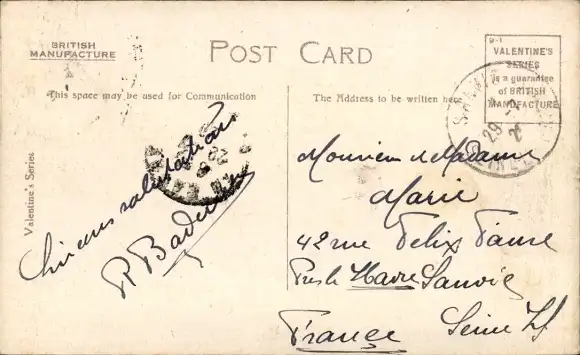 BRITISH
MANUFACTURE
POST CARD
VALENTINE'S
SERIES
is a guarantee
of BRITISH
MANUFACTURE
This space may be used for Communication
The Address to be written here
Valentine's Series
salutations
R
Monsieur & Madame
Marie
42 rue Felix Faure
Près le Havre Sanvic
Seine Inf
France
29